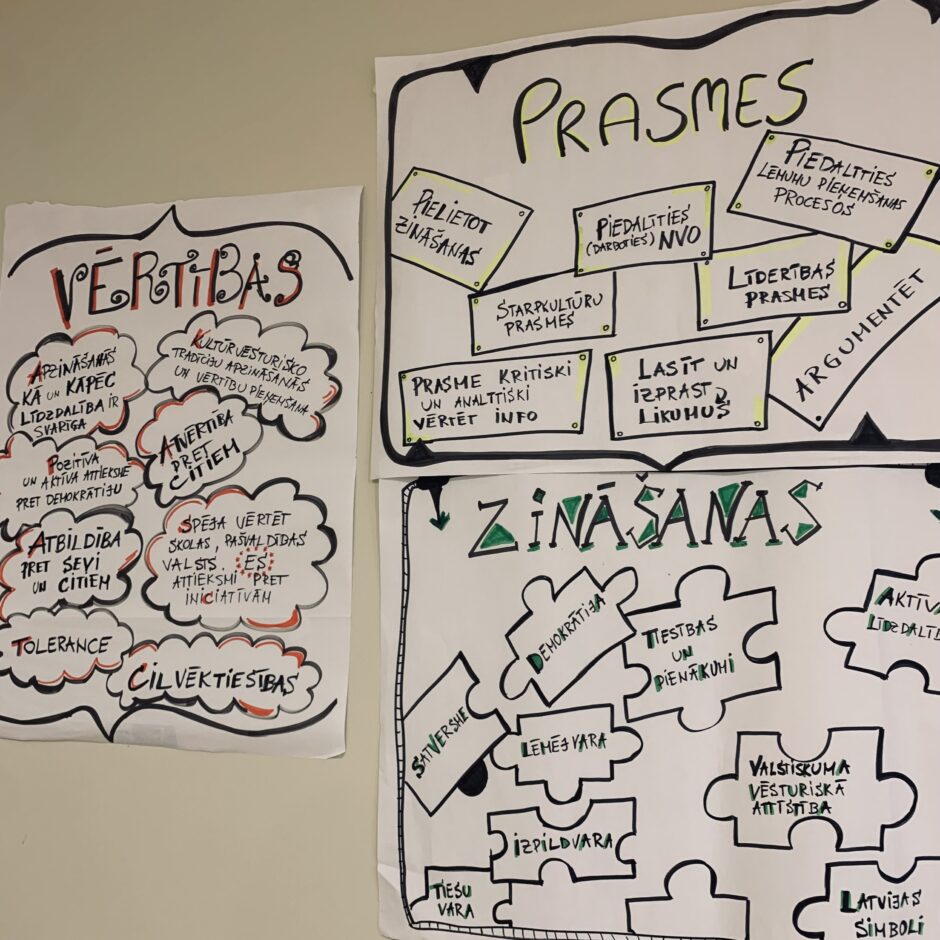 VĒRTĪBAS
APZINĀŠANĀS
KĀ UN KĀPĒC
LĪDZDALĪBA IR
SVARĪGA
KULTŪRVĒSTURISKO
TRADĪCIJU APZINĀŠANĀS
UN VĒRTĪBU PIEŅEMŠANA
POZITĪVA
UN AKTĪVA ATTIEKSME
PRET DEMOKRĀTIJU
ATVĒRTĪBA
PRET
CITIEM
ATBILDĪBA
PRET SEVI
UN CITIEM
SPĒJA VĒRTĒT
SKOLAS, PAŠVALDĪBAS
VALSTS, ES
ATTIEKSMI PRET
INICIATĪVĀM
TOLERANCE
CILVĒKTIESĪBAS
PRASMES
PIELIETOT
ZINĀŠANAS
PIEDALĪTIES
(DARBOTIES) NVO
PIEDALĪTIES
LĒMUMU PIEŅEMŠANAS
PROCESOS
STARPKULTŪRU
PRASMES
LĪDERĪBAS
PRASMES
ARGUMENTĒT
PRASME KRITISKI
UN ANALĪTISKI
VĒRTĒT INFO
LASĪT UN
IZPRAST
LIKUMUS
ZINĀŠANAS
DEMOKRĀTIJA
TIESĪBAS
UN
PIENĀKUMI
AKTĪVA
LĪDZDALĪB
SATVERSME
LĒMĒJVARA
VALSTISKUMA
VĒSTURISKĀ
ATTĪSTĪBA
IZPILDVARA
TIESU
VARA
LATVIJAS
SIMBOLI